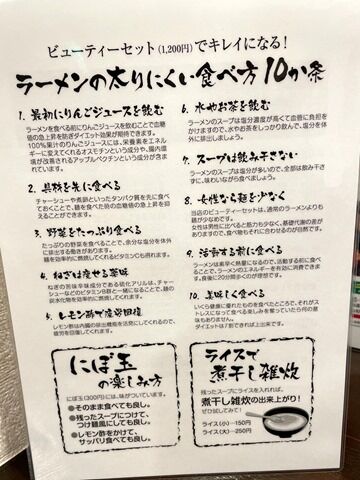 ビューティーセット(1,200円)でキレイになる!
ラーメンの太りにくい食べ方10か条
1. 最初にりんごジュースを飲む
ラーメンを食べる前にりんごジュースを飲むことで血糖
値の急上昇を防ぎダイエット効果が期待できます。
100%果汁のりんごジュースには、栄養素をエネル
ギーに変えてくれるオスモチンという成分や、腸内環
境が改善されるアップルペクチンという成分が含まれ
ています。
2. 具材を先に食べる
チャーシューや煮卵といったタンパク質を先に食べて
おくことで、麺を食べた時の血糖値の急上昇を抑
えることができます。
3. 野菜をたっぷり食べる
たっぷりの野菜を食べることで、余分な塩分を体外
に排出する働きがあります。
麺を効率的に燃焼してくれるビタミンCも摂れます。
4. ねぎは痩せる薬味
ねぎの辛味成分である硫化アリルは、チャー
シューなどのビタミンB群と一緒になることで、麺の
炭水化物を効率的に燃焼してくれます。
5. レモン酢で疲労回復
レモン酢は内臓の排出機能を活発にしてくれるので、
疲労を回復してくれます。
6. 水やお茶を飲む
ラーメンのスープは塩分濃度が高くて血管に負担を
かけますので、水やお茶をしっかり飲んで、塩分を体
外に排出しましょう。
7. スープは飲み干さない
ラーメンのスープは塩分が多いので、全部は飲み干さ
ずに、味わいながら食べましょう。
8. 女性なら麺を少なく
当店のビューティーセットは、通常のラーメンよりも
麺が少なめです。
女性は男性に比べると筋力も少なく、基礎代謝の差が
ありますので、食べ物もそれに合わせるのが自然です。
9. 活動する前に食べる
ラーメンは素早く熱量になるので、活動する前に食べ
ることで、ラーメンのエネルギーを有効に消費できます。
食後に20分間歩くのが理想です。
10. 美味しく食べる
いくら健康に優れたものを食べたところで、それがス
トレスになって食べる楽しみを奪っていたら何の意
味もありません。
ダイエットは7割できれば上出来です。
にぼ玉
の楽しみ方
にぼ玉(300円)には、味がついています。
●そのまま食べても良し。
●残ったスープにつけて、
つけ麺風にしても良し。
●レモン酢をかけて、
サッパリ食べても良し。
ライスで
煮干し雑炊
残ったスープにライスを入れれば、
煮干し雑炊の出来上がり!
ぜひ試してみて!
ライス(小)…150円
ライス(大)…250円